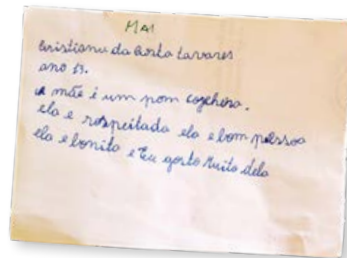 MAI
Cristianu da Costa tavares
ano 13.
a mãe i um pom cozchera.
ela e respeitada ela e bom pessoa
ela e bonita e Eu gosto muito dela